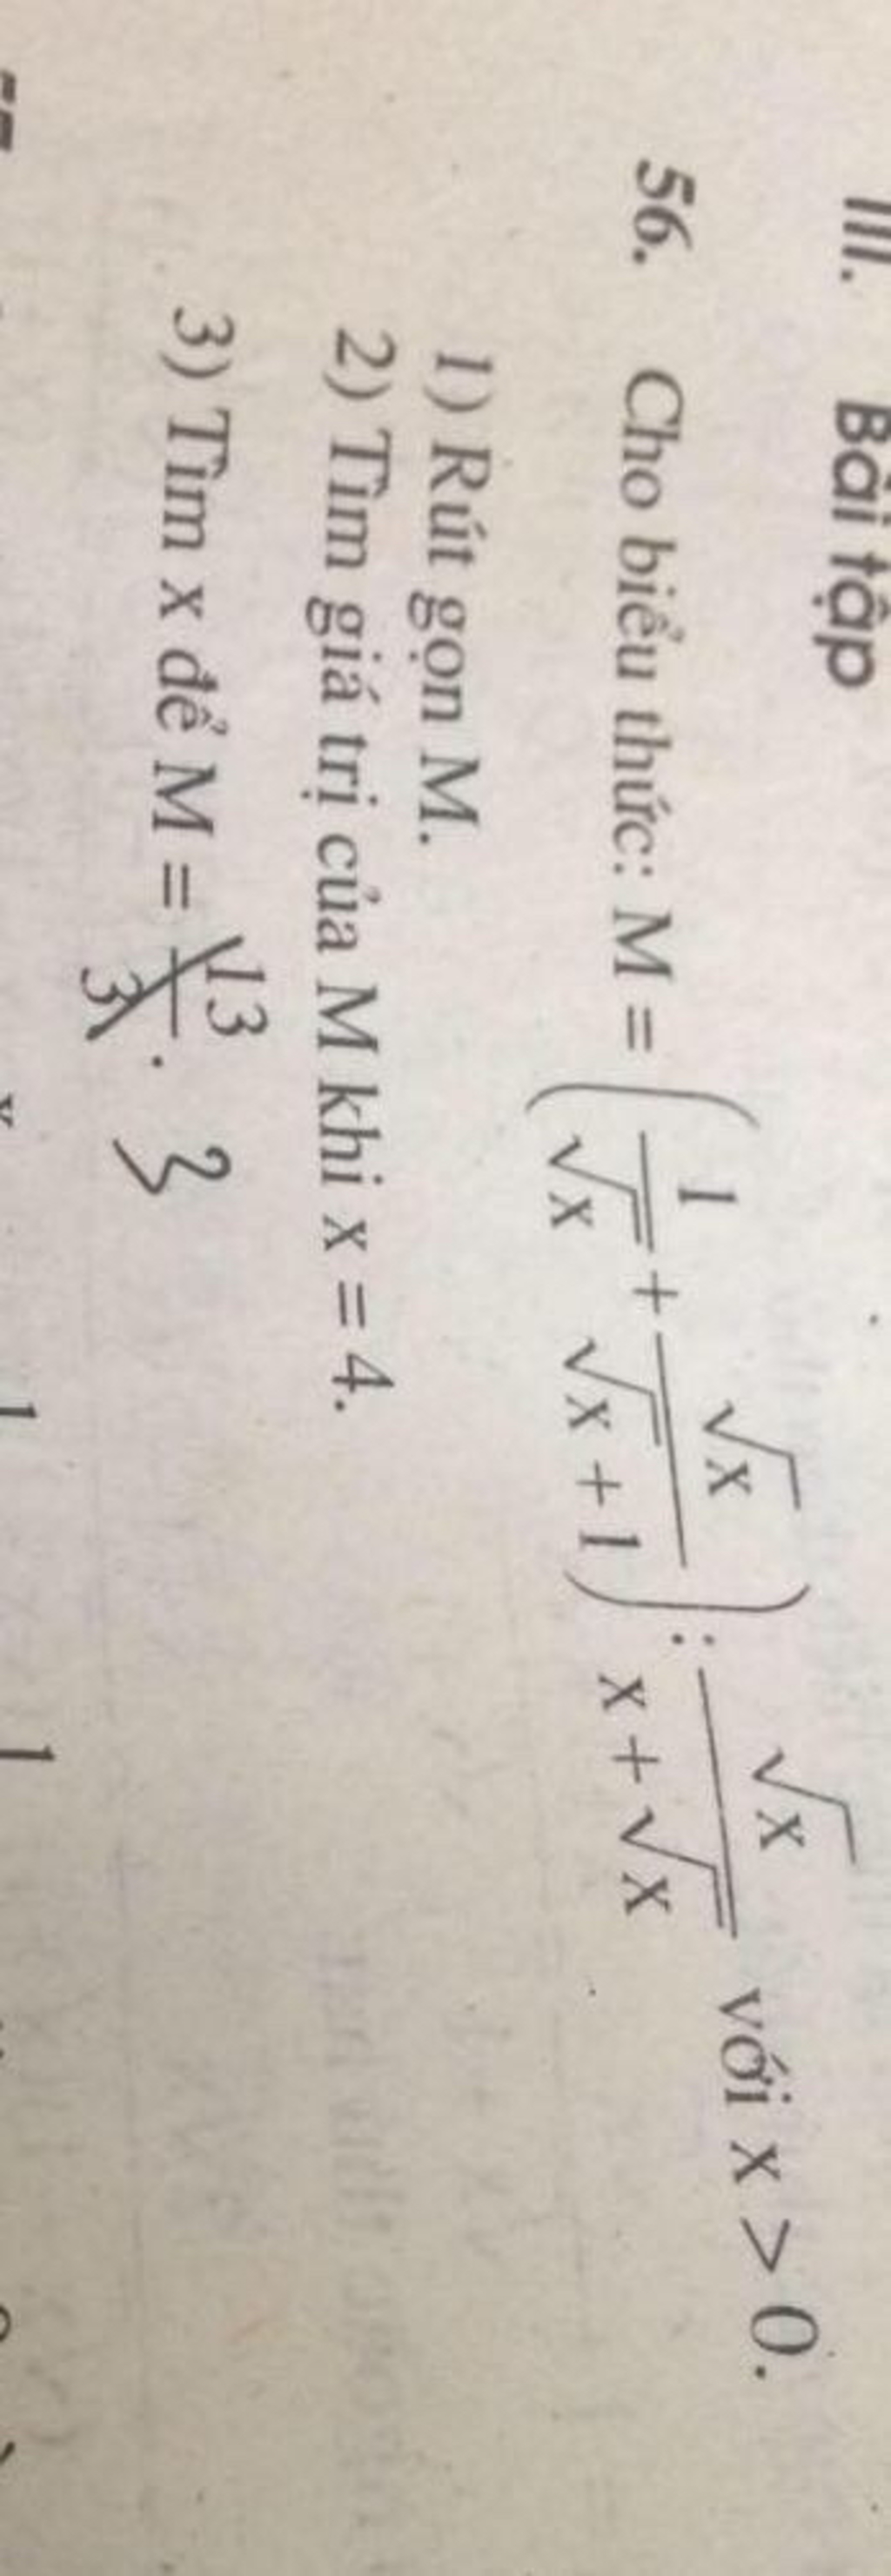 III. Bài tập
56. Cho biểu thức: M = (1/√x + √x/(√x + 1)) : √x/(x + √x) với x > 0.
1) Rút gọn M.
2) Tìm giá trị của M khi x = 4.
3) Tìm x để M = 13/3. 3